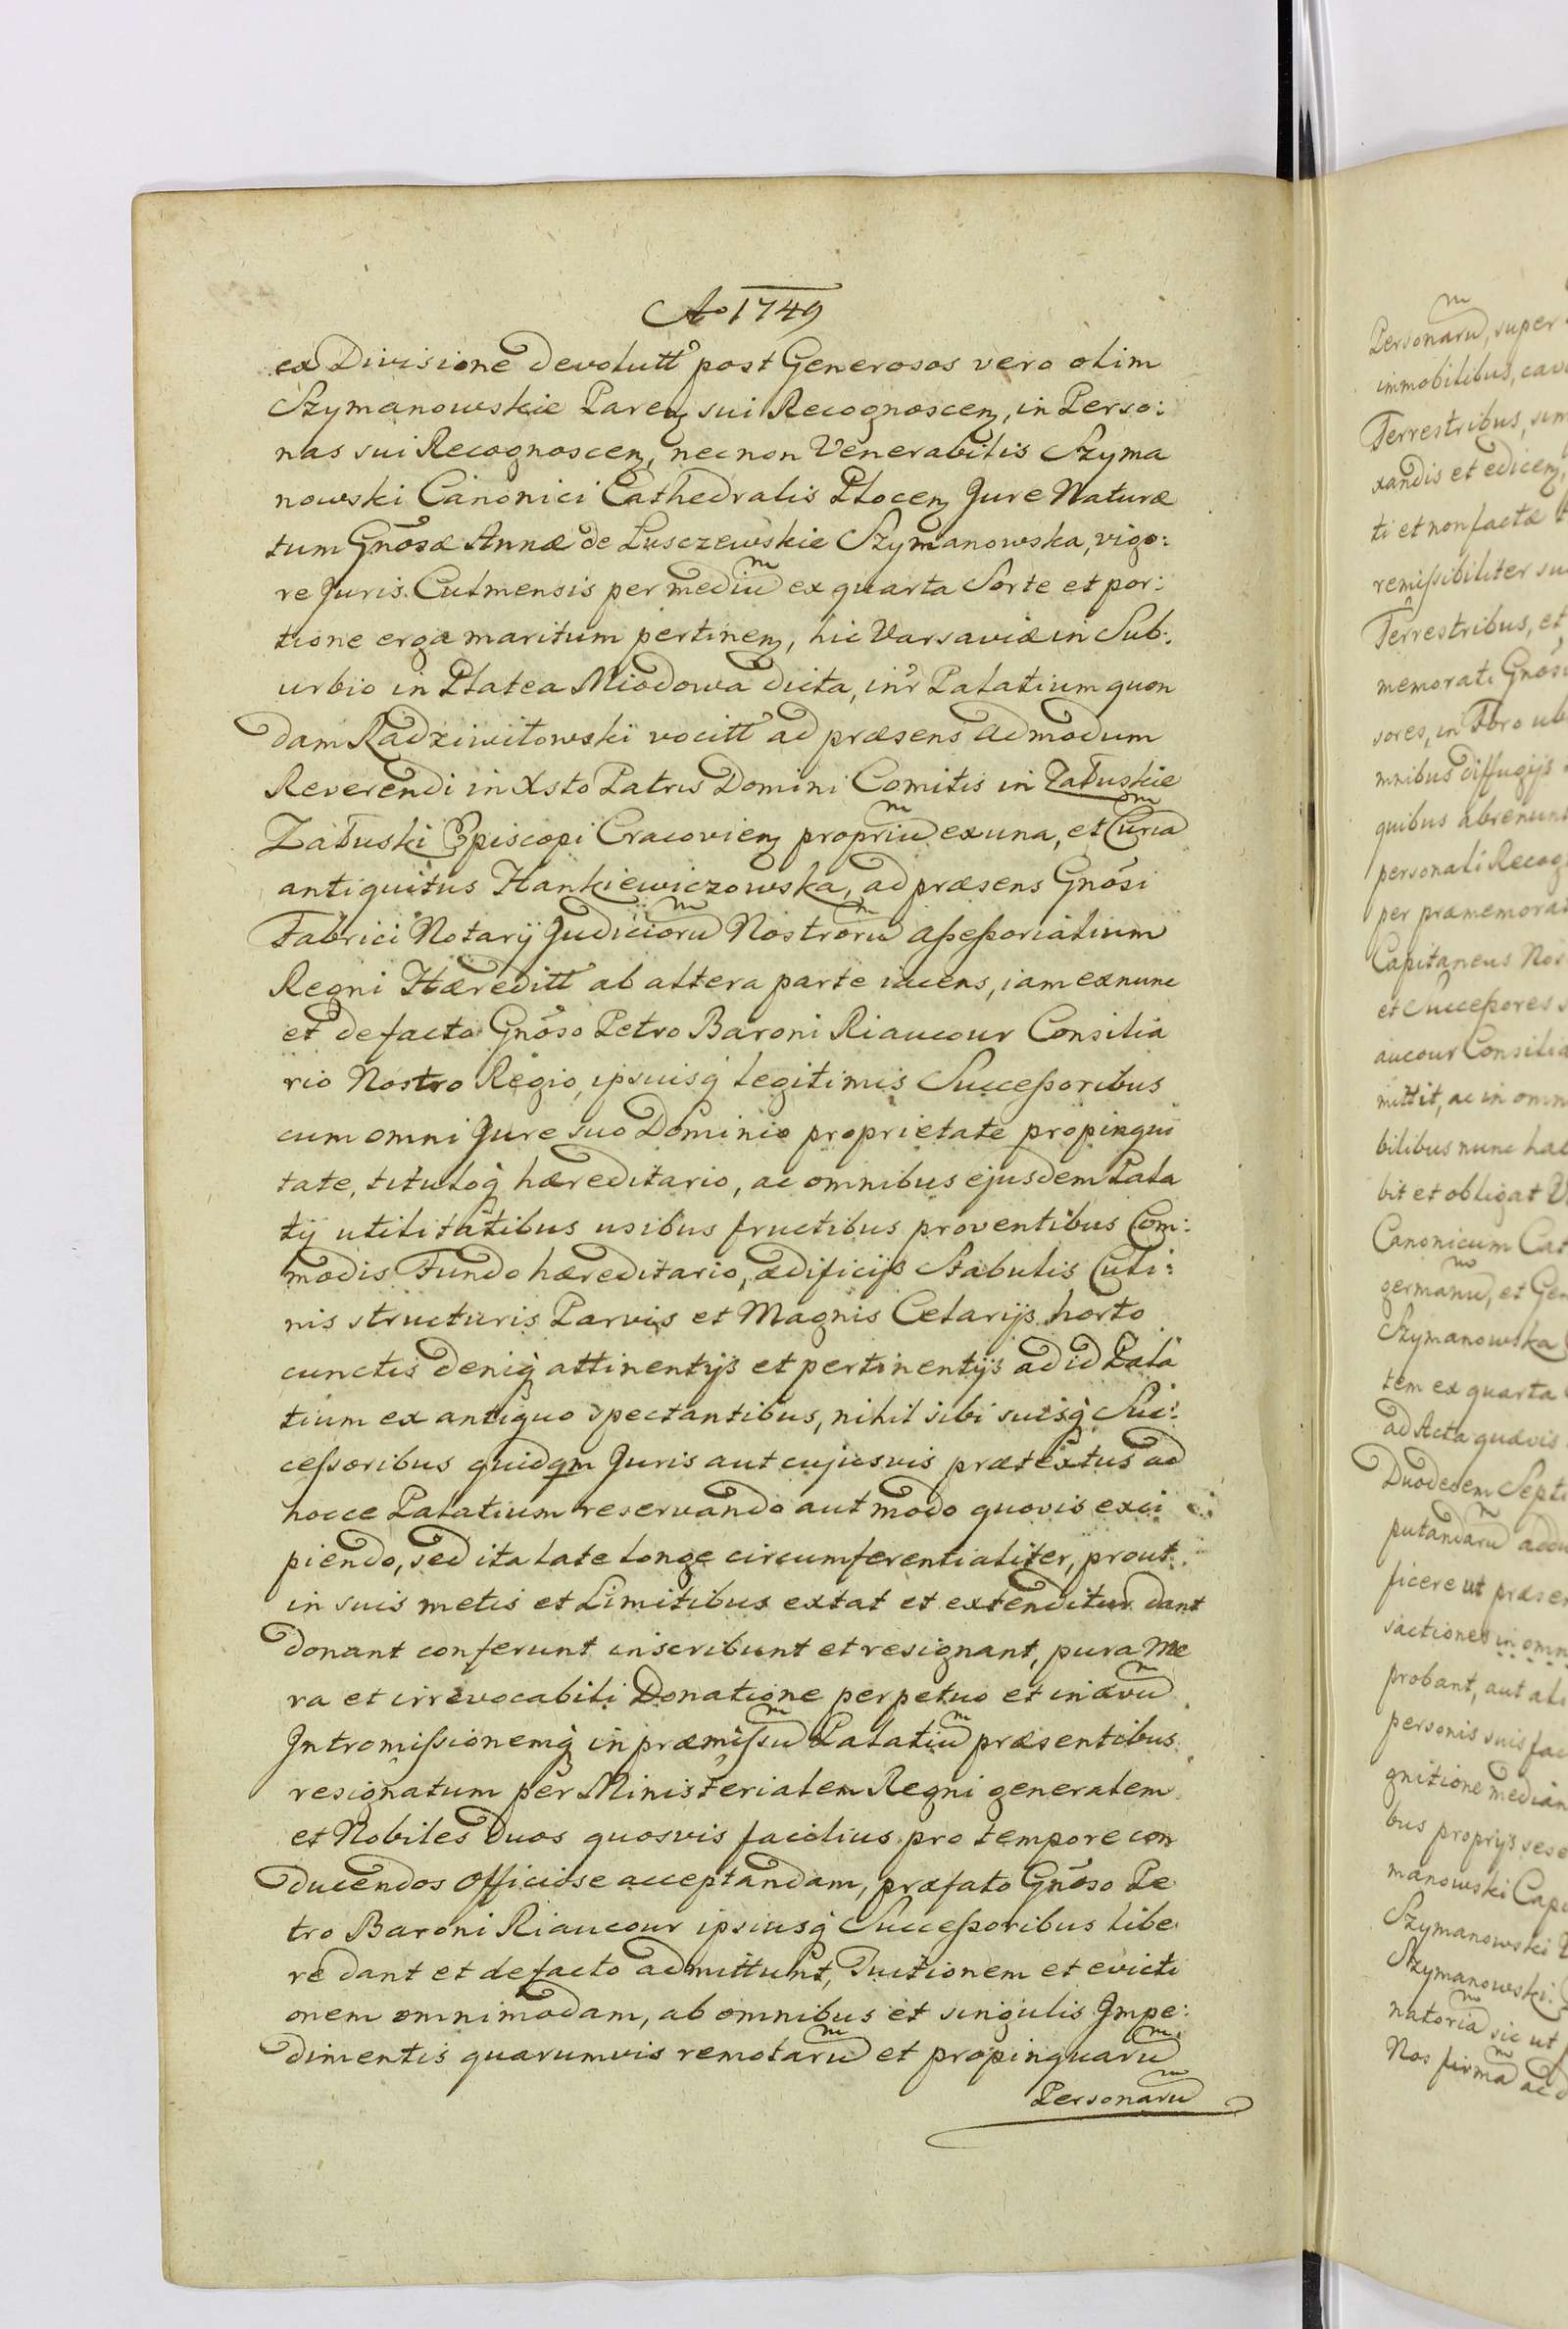 Ao 1749
ex Divisione devolutt post Generosos vero olim
Szymanowskie Parenz sui Recognoscenz, in Perso:
nas sui Recognoscenz, necnon Venerabilis Szyma
nowski Canonici Cathedralis Plocenz Jure Naturæ
tum Gnosæ Annæ de Lusczewskie Szymanowska, vigo:
re Juris Culmensis per mediu͠ ex quarta Sorte et por:
tione erga maritum pertinenz, hic Varsaviæ in Sub:
urbio in Platea Miodowa dicta, intr Palatium quon
dam Radziwiłowskï vocitt ad præsens admodum
Reverendi in Xsto Patris Domini Comitis in Załuskie
Załuski Episcopi Cracovienz propriu͠ ex una, et Curia͠
antiquitus Hankiewiczowska, ad præsens Gnosi
Fabrici Notarÿ Judicioru͠ Nostroru͠ aßeßorialium
Regni Hæreditt ab altera parte iacens, iam exnunc
et defacto Gnoso Petro Baroni Riaucour Consilia
rio Nostro Regio, ipsiusq legitimis Succeßoribus
cum omni Jure suo Dominio proprietate propinqui
tate, tituloq hæreditario, ac omnibus ejusdem Pala
tÿ utilitatibus usibus fructibus proventibus Com:
modis Fundo hæreditario, ædificÿs Stabulis Culi:
nis structuris Parvis et Magnis Celarÿs horto
cunctis deniq attinentÿs et pertinentÿs ad id Pala
tium ex antiquo spectantibus, nihil sibi suisq Suc:
ceßoribus quidqm Juris aut cujusvis prætextus ad
hocce Palatium reservando aut modo quovis exci
piendo, sed ita late longe circumferentialiter, prout
in suis metis et Limitibus extat et extenditur dant
donant conferunt inscribunt et resignant, pura Me
ra et irrevocabili Donatione perpetuo et inævu͠
Intromißionemq in præmißu͠ Palatiu͠ præsentibus
resignatum per Ministerialem Regni generalem
et Nobiles Duos quosvis facilius pro tempore con
ducendos Officiose acceptandam, præfato Gnoso Pe
tro Baroni Riaucour ipsiusq Succeßoribus libe
re dant et defacto admittunt, Tuitionem et evicti
onem omnimodam, ab omnibus et singulis Impe:
dimentis quarumvis remotaru͠ et propinquaru͠
Personaru͠
Personaru͠, super
immobilibus, cav
Terrestribus, sim
xandis et edicenz,
ti et non factæ
remißibiliter su
Terrestribus, et
memorati Gnosi
sores, in Foro ub
mnibus diffugÿs
quibus abrenunt
personali Recog
per præmemorat
Capitaneus Nos
et Succeßores s
aucour Consilia
mittit, ac in omn
bilibus nunc hab
bit et obligat V
Canonicum Cat
germanu͠, et Gen
Szymanowska
tem ex quarta
ad Acta quævis
Duodecem Septi
putandaru͠ addu
ficere ut præsen
sactiones in omn
probant, aut ali
personis suis fac
gnitione median
bus proprÿs sese
manowski Capi
Szymanowski
Szymanowski
natoria͠ sic ut
Nos firma͠ ac d